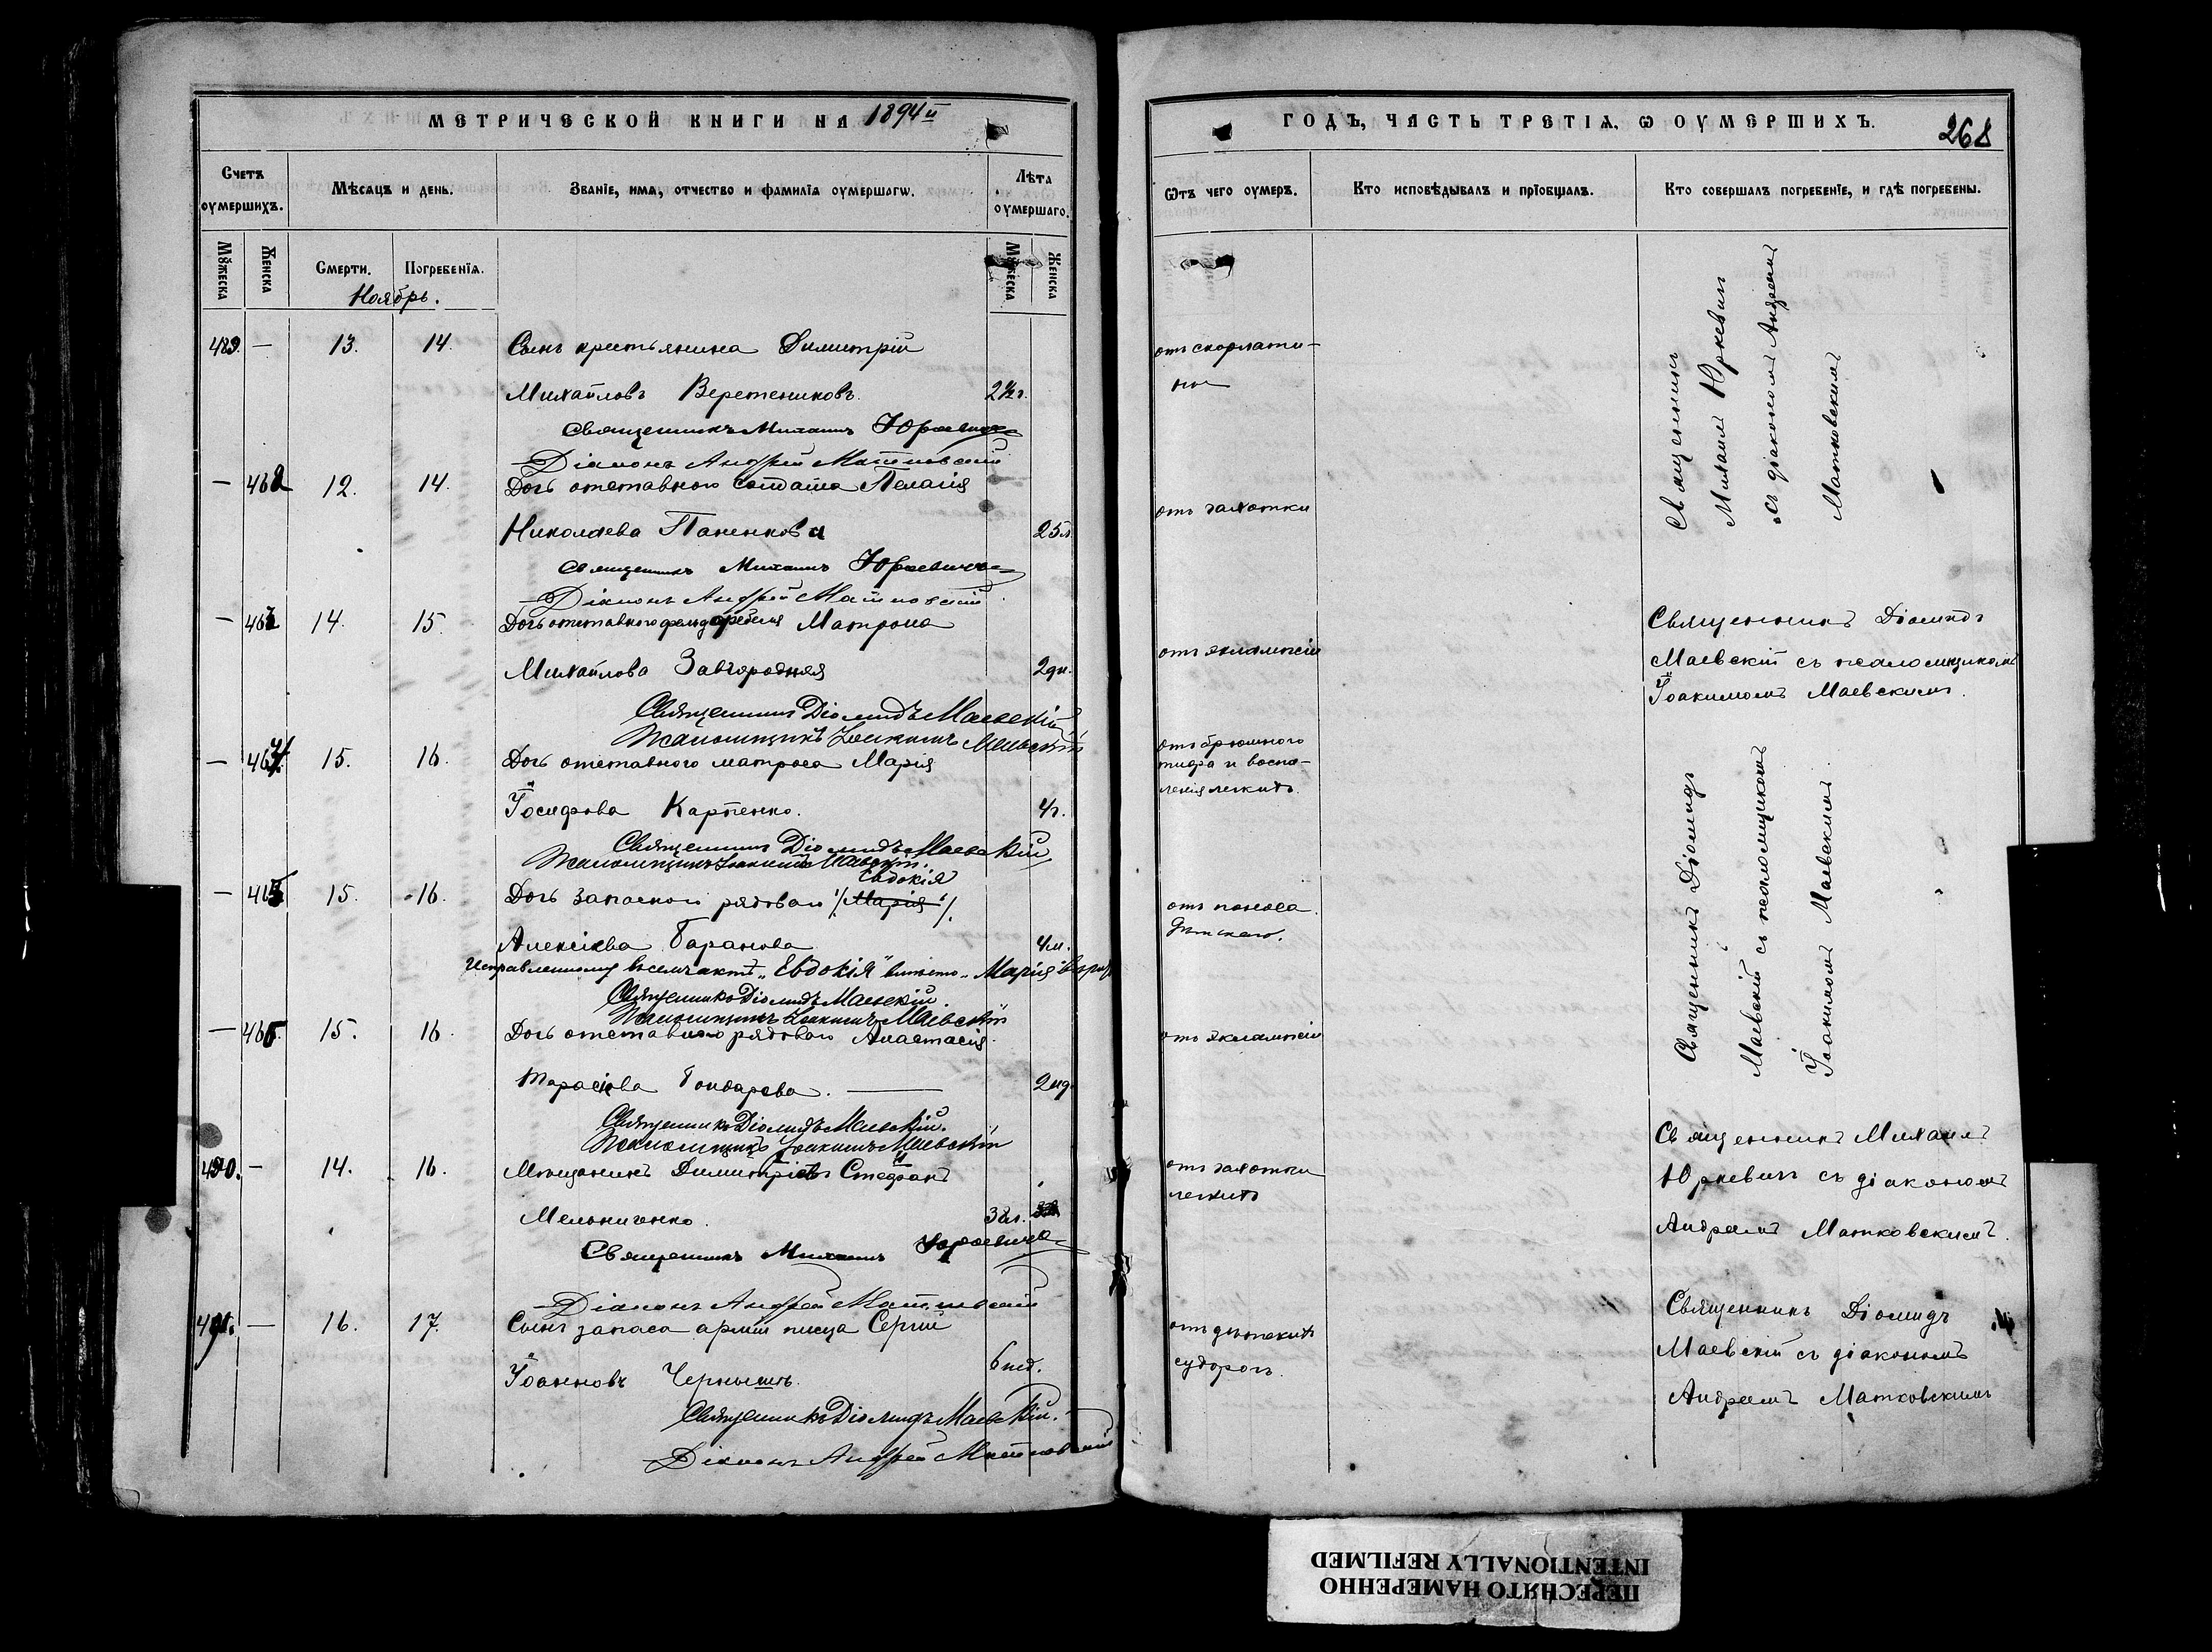 МЕТРИЧЕСКОЙ КНИГИ НА 1894й
Счетъ оумершихъ.
Мѣсяцъ и день.
Званіе, имя, отчество и фамилія оумершагѡ.
Лѣта оумершаго.
Мꙋжеска
Женска
Смерти.
Погребенія.
Мꙋжеска
Женска
Ноябрь.
489. — 13. 14. Сынъ крестьянина Димитрій
Михайловъ Веретениковъ. 2½ г.
Священникъ Михаилъ Юркевичъ
Діаконъ Андрей Матковскій
— 462 12. 14. Дочь отставного солдата Пелагія
Николаева Паненкова 25 л.
Священникъ Михаилъ Юркевичъ
Діаконъ Андрей Матковскій
— 463 14. 15. Дочь отставного фельдфебеля Матрона
Михайлова Завгородняя 2 дн.
Священникъ Діомидъ Маевскій
Псаломщикъ Іоакимъ Маевскій
— 464. 15. 16. Дочь отставного матроса Марія
Іосифова Карпенко. 4 г.
Священникъ Діомидъ Маевскій
Псаломщикъ Іоакимъ Маевскій.
Евдокія
— 465 15. 16. Дочь запасного рядового /Марія/.
Алексіева Баранова 4 м.
Исправленному въ семъ актѣ „Евдокія" вмѣсто „Марія"
Священникъ Діомидъ Маевскій.
Псаломщикъ Іоакимъ Маевскій
— 466. 15. 16. Дочь отставного рядового Анастасія
Тарасіева Гондарева. 2 нд.
Священникъ Діомидъ Маевскій.
Псаломщикъ Іоакимъ Маевскій
490. — 14. 16. Мѣщанинъ Димитріевъ Стефанъ
Мельниченко. 32 л.
Священникъ Михаилъ Юркевичъ
Діаконъ Андрей Матковскій
491. — 16. 17. Сынъ запаса арміи писца Сергій
Іоанновъ Чернышъ. 6 нед.
Священникъ Діомидъ Маевскій.
Діаконъ Андрей Матковскій
ГОДЪ, ЧАСТЬ ТРЕТІЯ, Ѡ ОУМЕРШИХЪ.
268
Ѿтъ чего оумеръ.
Кто исповѣдывалъ и прїобщалъ.
Кто совершалъ погребенїе, и гдѣ погребены.
отъ скорлати-
ны
Священникъ
Михаилъ Юркевичъ
съ діакономъ Андреемъ
Матковскимъ
отъ чахотки
отъ эклампсіи
Священникъ Діомидъ
Маевскій съ псаломщикомъ
Іоакимомъ Маевскимъ.
отъ брюшного
тифа и воспа-
ленія легкихъ.
Священникъ Діомидъ
Маевскій съ псаломщикомъ
Іоакимомъ Маевскимъ.
отъ поноса
дѣтскаго.
отъ эклампсіи
отъ чахотки
легкихъ
Священникъ Михаилъ
Юркевичъ съ діакономъ
Андреемъ Матковскимъ.
отъ дѣтскихъ
судорогъ.
Священникъ Діомидъ
Маевскій съ діакономъ
Андреемъ Матковскимъ
ПЕРЕСНЯТО НАМЕРЕННО
INTENTIONALLY REFILMED